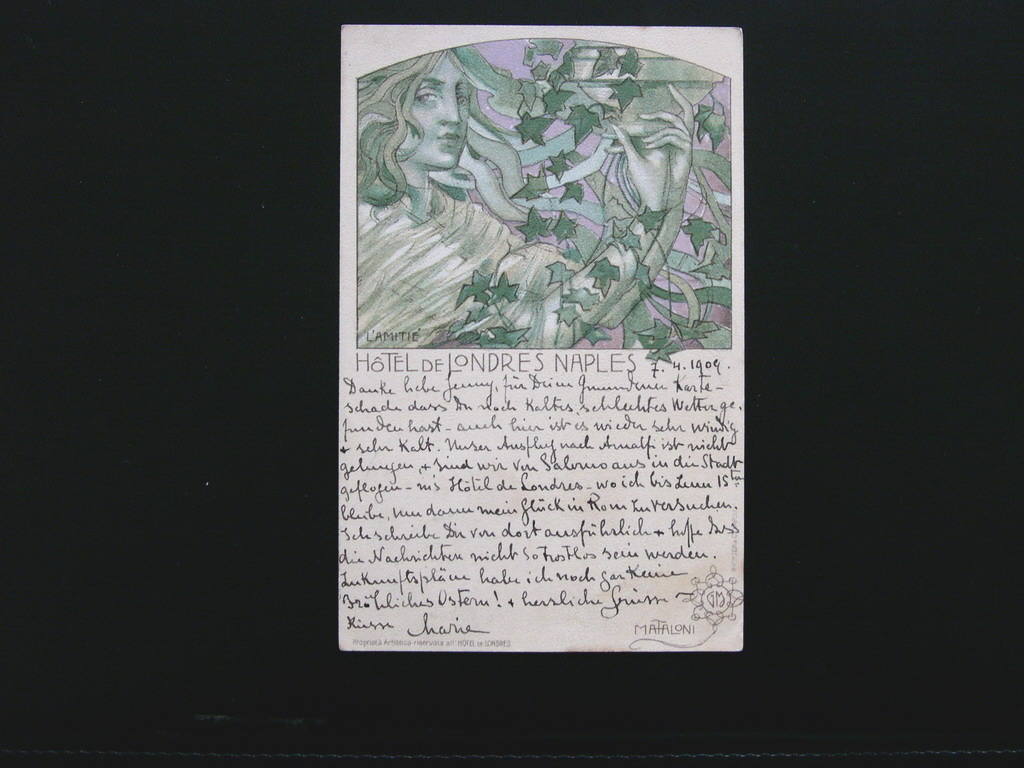 L'AMITIÉ
HÔTEL DE LONDRES NAPLES 7. 4. 1909.
Danke liebe Jenny, für Deine Gmundener Karte –
schade dass Du noch kaltes, schlechtes Wetter ge-
funden hast – auch hier ist es wieder sehr windig
+ sehr kalt. Unser Ausflug nach Amalfi ist nicht
gelungen, + sind wir von Salerno aus in die Stadt
geflogen – ins Hôtel de Londres – wo ich bis zum 15ten
bleibe, um dann mein Glück in Rom zu versuchen.
Ich schreibe Dir von dort ausführlich + hoffe dass
die Nachrichten nicht so trostlos sein werden.
Zukunftspläne habe ich noch gar keine
Fröhliches Ostern! + herzliche Grüsse +
Küsse Marie
GM
MATALONI
Proprietà Artistica riservata all' HÔTEL DE LONDRES